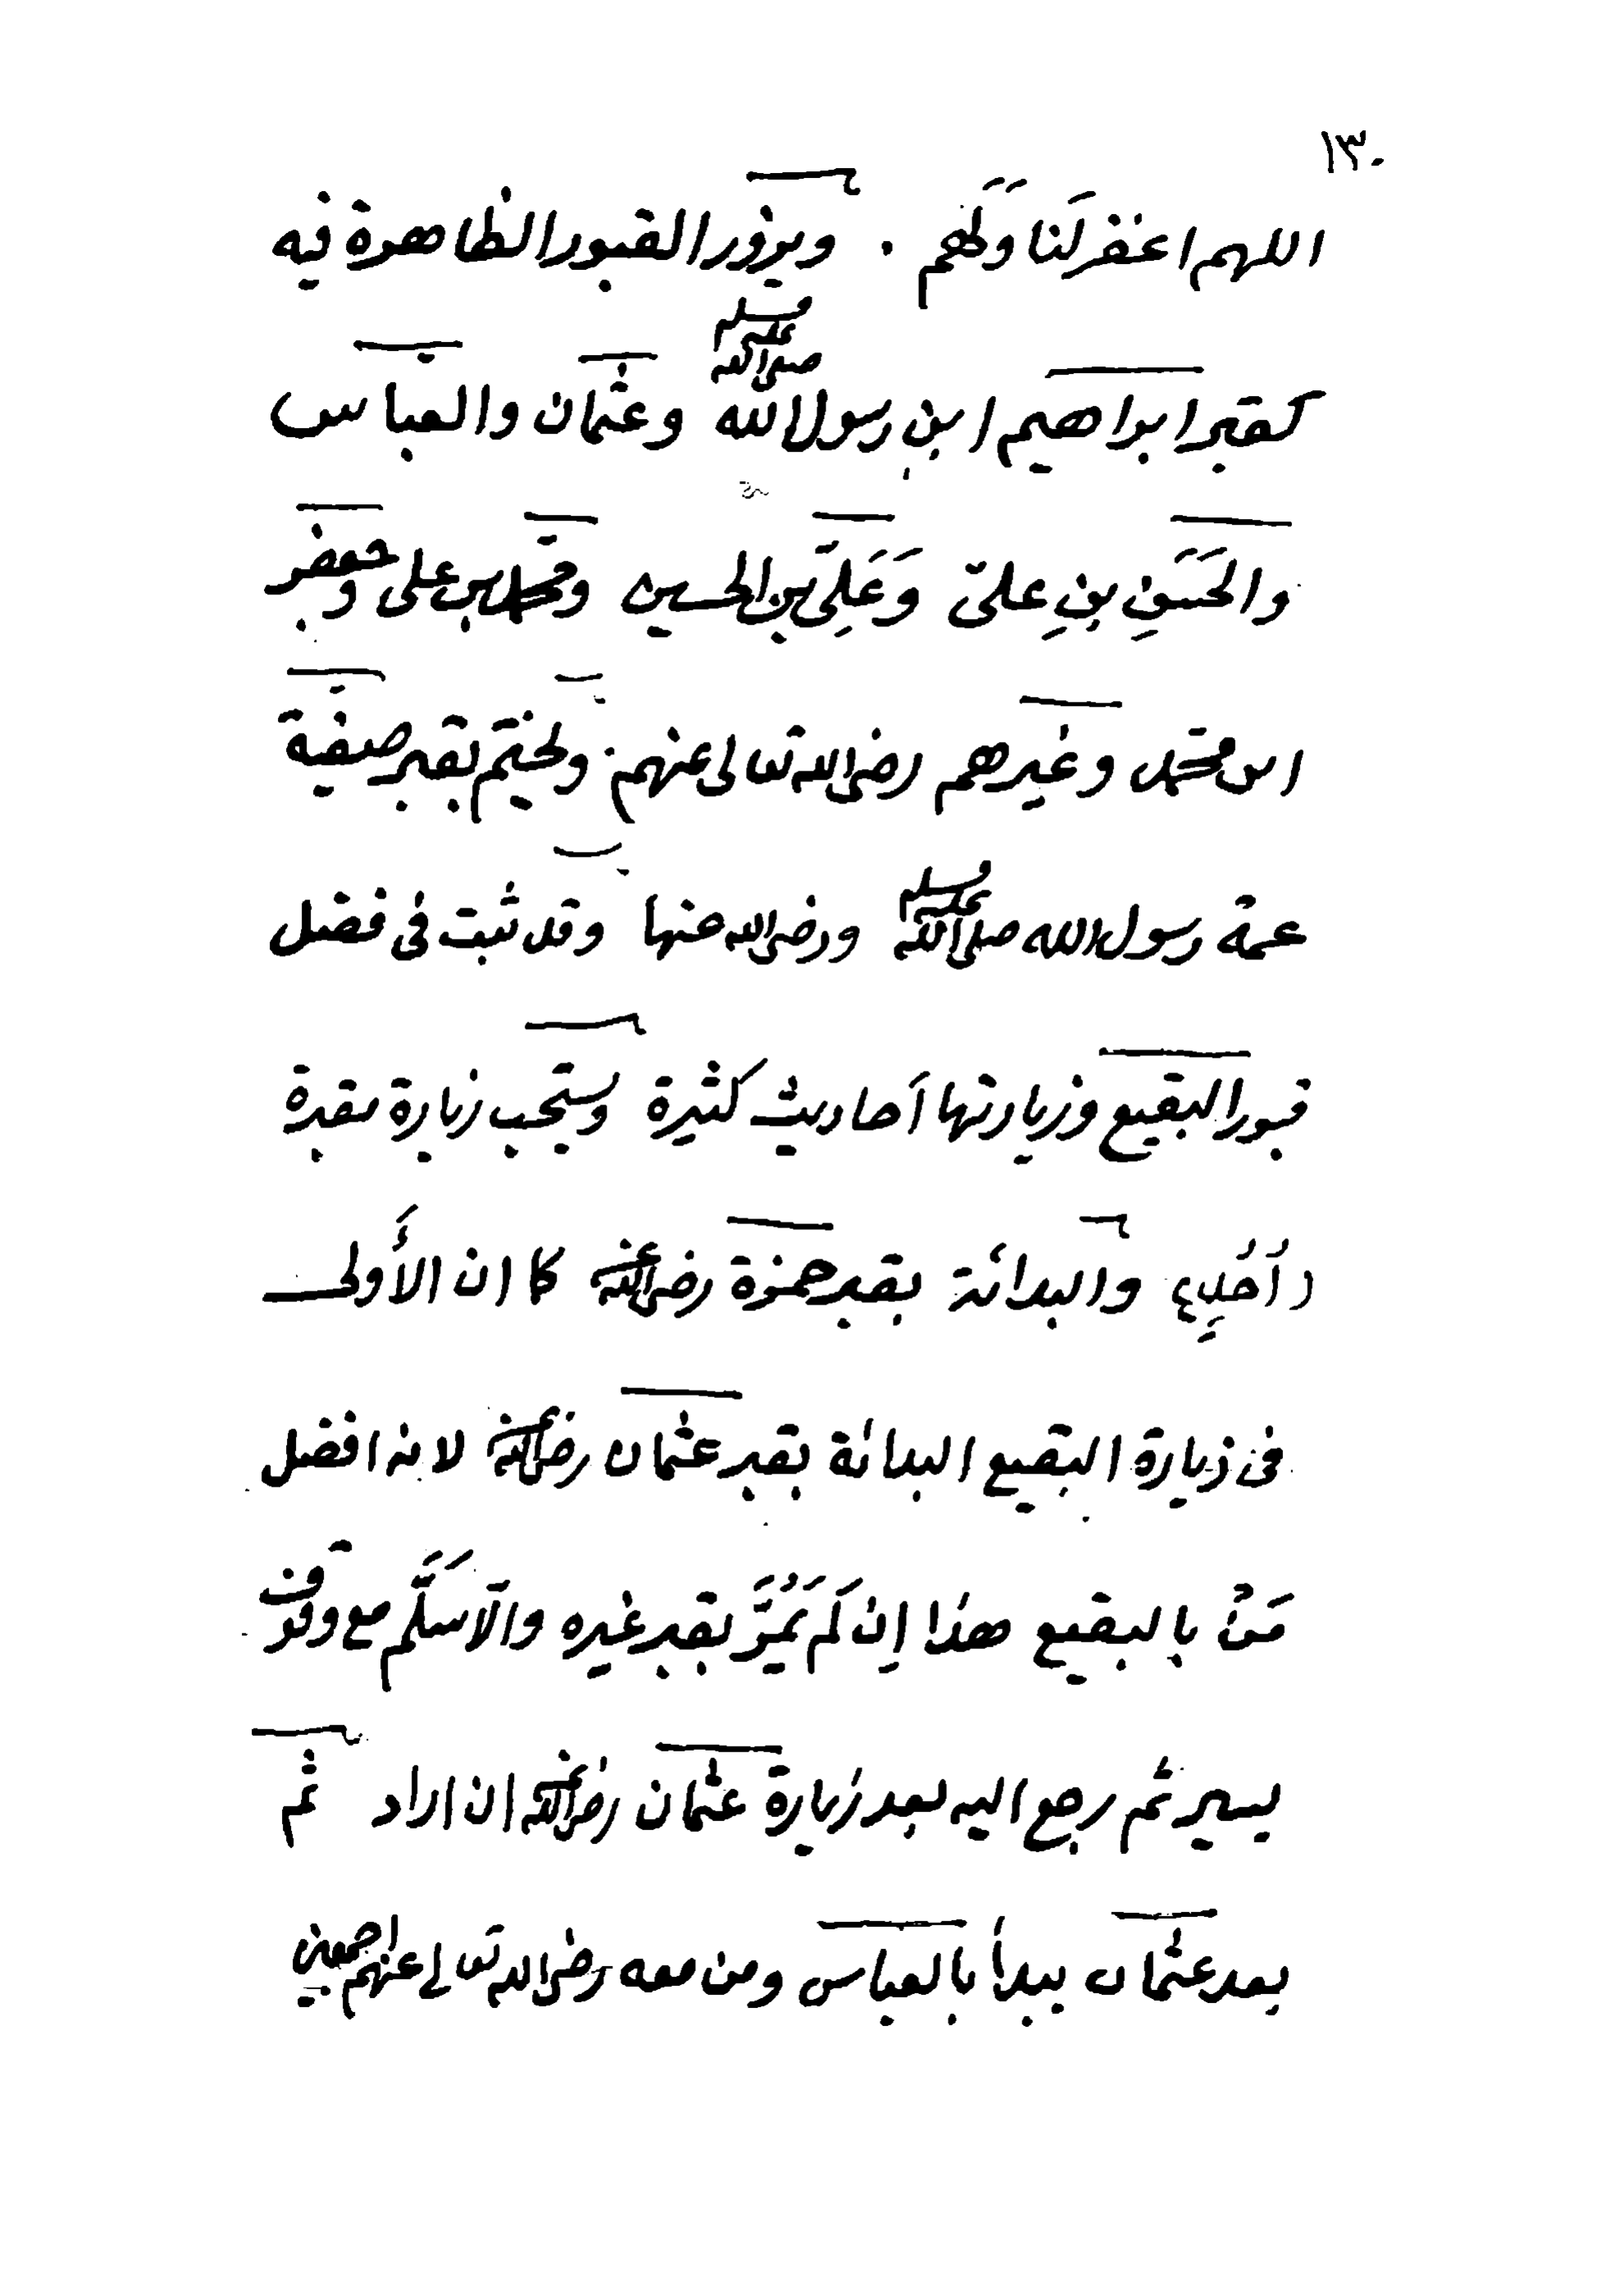 ١٣٠
اللهم اغفر لَنا وَلَهم . ويزور القبور الظاهرة فيه
كقبر ابراهيم ابن رسول الله صلى الله عليه وسلم وعثمان والعباس
والحَسَنِ بنِ علىّ وَعَلِىّ بن الحسين ومحمّد بن على وجعفر
ابن محمّد وغيرهم رضى الله تعالى عنهم . ويختم بقبر صفية
عمة رسول الله صلى الله عليه وسلم ورضى الله عنها وقد ثبت فى فضل
قبور البقيع وزيارتها أحاديث كثيرة ويستحب زيارة مقبرة
(أُحُدٍ) والبدائة بقبر حمزة رضى الله عنه كما ان الأَولى
فى زيارة البقيع البدائة بقبر عثمان رضى الله عنه لانه افضل
مَنْ بالبقيع هذا إن لَم يَمُرَّ بقبر غيره والّا سَلَّم مع وقوف
يسير ثم رجع اليه بعد زيارة عثمان رضى الله عنه ان اراد ثم
بعد عثمان يبدأ بالعباس ومن معه رضى الله تعالى عنهم اجمعين